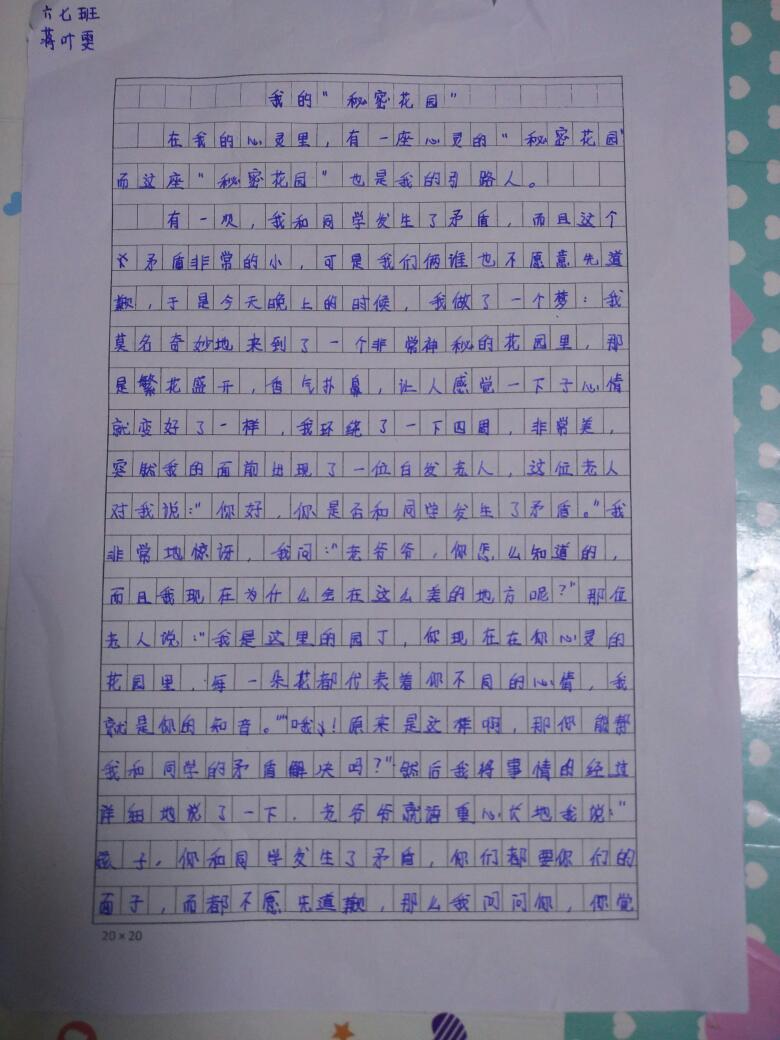 六七班
蒋叶雯
我的“秘密花园”
在我的心灵里，有一座心灵的“秘密花园”
而这座“秘密花园”也是我的引路人。
有一次，我和同学发生了矛盾，而且这个
矛盾非常的小，可是我们俩谁也不愿意先道
歉，于是今天晚上的时候，我做了一个梦：我
莫名奇妙地来到了一个非常神秘的花园里，那
是繁花盛开，香气扑鼻，让人感觉一下子心情
就变好了一样，我环绕了一下四周，非常美，
突然我的面前出现了一位白发老人，这位老人
对我说：“你好，你是否和同学发生了矛盾。”我
非常地惊讶，我问：“老爷爷，你怎么知道的，
而且我现在为什么会在这么美的地方呢？”那位
老人说：“我是这里的园丁，你现在在你心灵的
花园里，每一朵花都代表着你不同的心情，我
就是你的知音。”“哦！原来是这样啊，那你能帮
我和同学的矛盾解决吗？”然后我将事情的经过
详细地说了一下，老爷爷就语重心长地我说：“
孩子，你和同学发生了矛盾，你们都要你们的
面子，而都不愿先道歉，那么我问问你，你觉
20×20